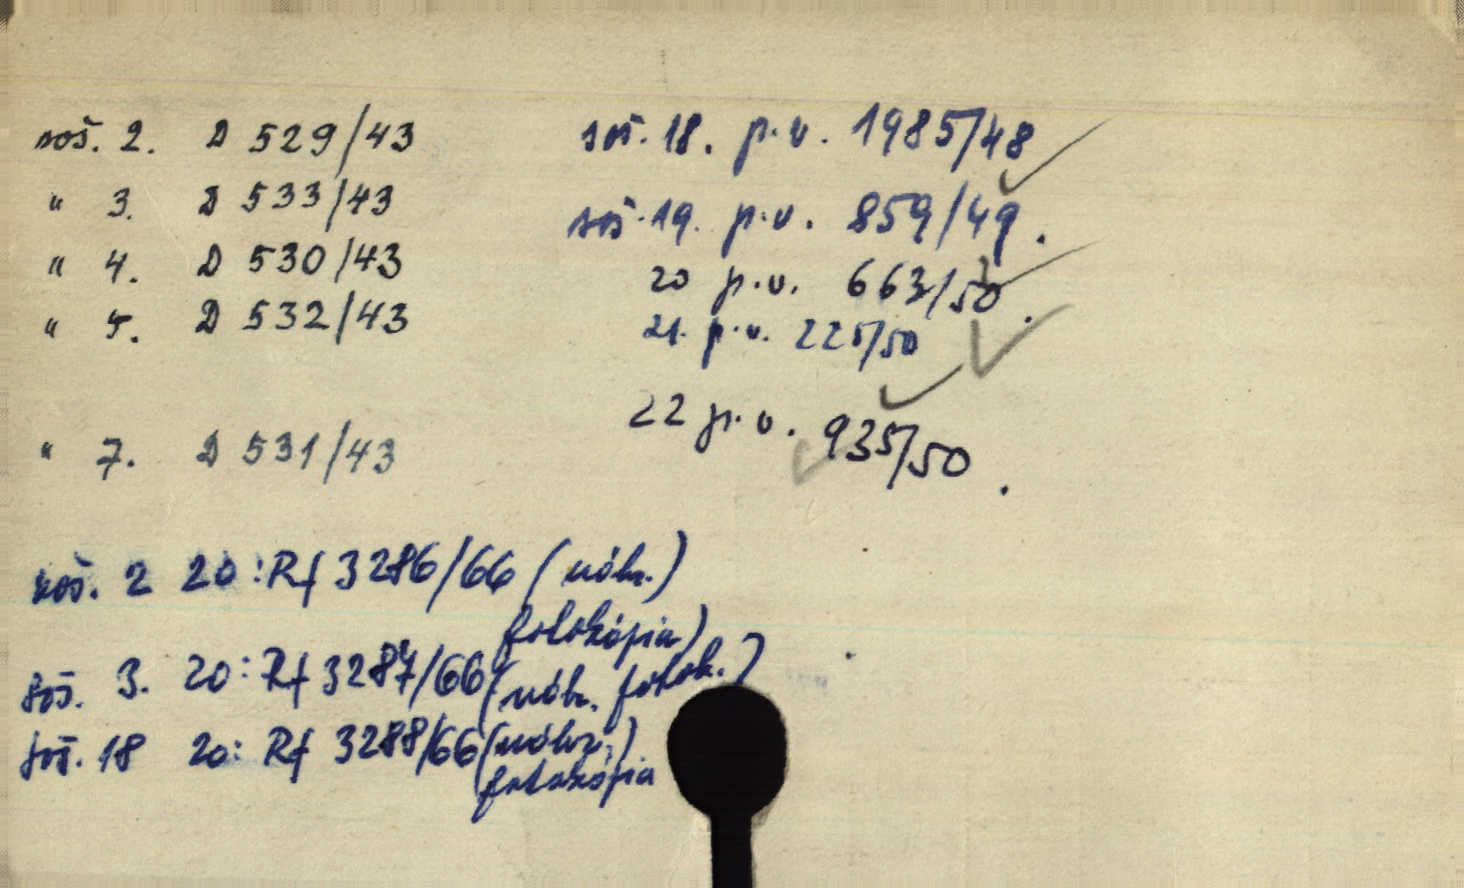 soš. 2. D 529/43
" 3. D 533/43
" 4. D 530/43
" 5. D 532/43
" 7. D 531/43
soš. 18. p.v. 1985/48
soš. 19. p.v. 859/49.
20 p.v. 663/50.
21. p.v. 225/50
22 p.v. 935/50.
soš. 2 20: Rf 3286/66 (náhr.)
fotokópia)
soš. 3. 20: Rf 3287/66 (náhr. fotok.)
soš. 18 20: Rf 3288/66 (náhr.)
fotokópia